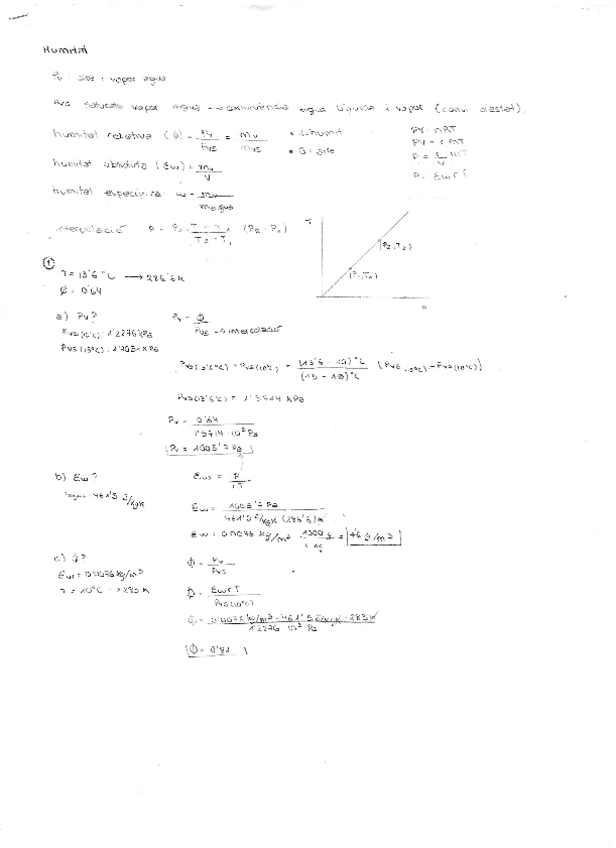 Humitat
Pv: aire i vapor aigua
Pvs: saturació vapor aigua → convivència aigua líquida i vapor (canvi d'estat).
humitat relativa (Φ) = Pv/Pvs = mv/mvs
• 1 = humit
• 0 = aire
PV = nRT
humitat absoluta (Ew) = mv/V
P = Ew r T
humitat específica: ω =
interpolació
T
(P2, T2)
(P1, T1)
①
T = 13'6 °C → 286'6 K
Φ = 0'64
a) Pv?
Pvs(10°C): 1'2276 kPa
Pv = Φ/Pvs → interpolació
Pvs(13'6°C) - Pvs(10°C) = (13'6 - 10)°C/(15 - 10)°C (Pvs(15°C) - Pvs(10°C))
Pv = 0'64
Pv = 1005'7 Pa
b) Ew?
461'5 J/kgK
Ew = P/rT
Ew = 1005'7 Pa/461'5 J/kgK (286'6) K
Ew = 0'0076 kg/m³ · 1000 g/1 kg = 7'6 g/m³
c) Φ?
Φ = Pv/Pvs
Ew = 0'0076 kg/m³
T = 10°C → 283 K
Φ = Ew r T/Pvs(10°C)
Φ = 0'0076 kg/m³ · 461'5 J/kgK · 283 K/1'2276 · 10³ Pa
Φ = 0'81